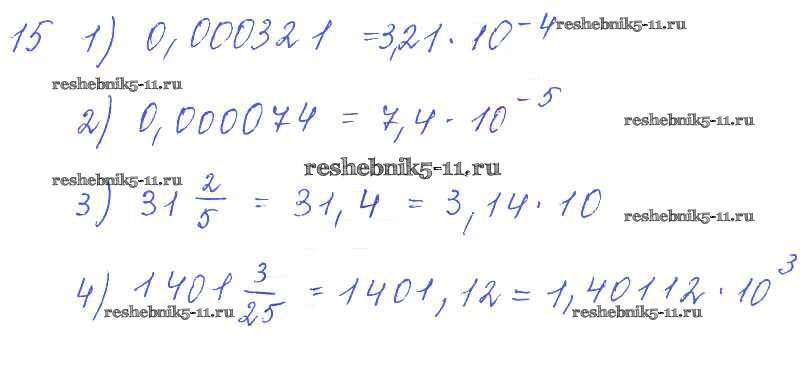 15 1) 0,000321 = 3,21 · 10⁻⁴ reshebnik5-11.ru
reshebnik5-11.ru
2) 0,000074 = 7,4 · 10⁻⁵ reshebnik5-11.ru
reshebnik5-11.ru
reshebnik5-11.ru
3) 31 2/5 = 31,4 = 3,14 · 10 reshebnik5-11.ru
4) 1401 3/25 = 1401,12 = 1,40112 · 10³
reshebnik5-11.ru reshebnik5-11.ru